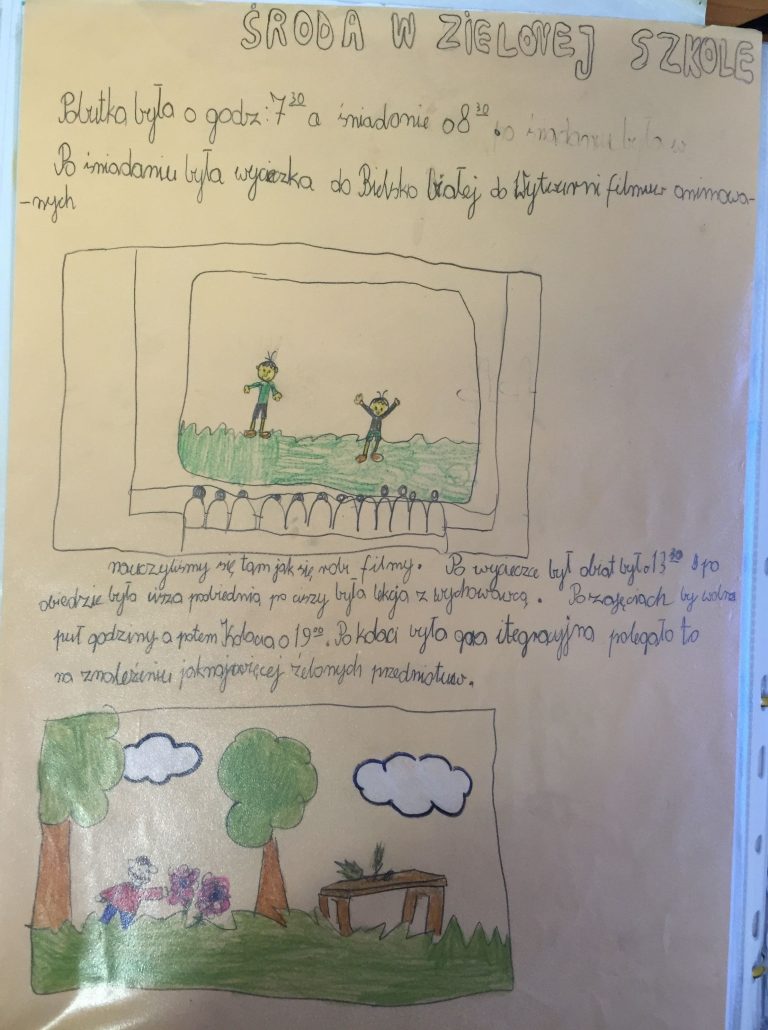 ŚRODA W ZIELONEJ SZKOLE
Pobutka była o godz: 7³⁰ a śniadanie o 8³⁰. po śniadaniu była w
Po śniadaniu była wycieczka do Bielsko Białej do Wytwurni filmuw animowa-
-nych
nauczyliśmy się tam jak się robi filmy. Po wycieczce był obiat było 13³⁰ a po
obiedzie była cisza pobiednia po ciszy była lekcja z wychowawcą. Po zajęciach by wolne
puł godziny a potem Kolacia o 19⁰⁰. Po kolaci była gra itegracyjna polegało to
na znależieniu jaknajwięcej żelonych przedmiotuw.